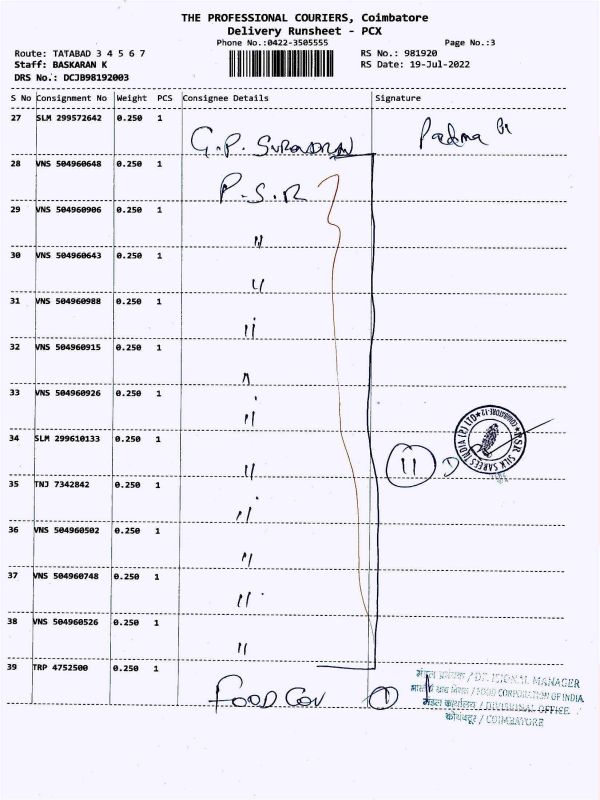 THE PROFESSIONAL COURIERS, Coimbatore
Delivery Runsheet - PCX
Phone No.:0422-3505555 Page No.:3
Route: TATABAD 3 4 5 6 7 RS No.: 981920
Staff: BASKARAN K RS Date: 19-Jul-2022
DRS No.: DCJB98192003
S No Consignment No Weight PCS Consignee Details Signature
27 SLM 299572642 0.250 1 G.P. Padma
28 VNS 504960648 0.250 1 P.S.R
29 VNS 504960906 0.250 1 "
30 VNS 504960643 0.250 1 "
31 VNS 504960988 0.250 1 "
32 VNS 504960915 0.250 1 "
33 VNS 504960926 0.250 1 "
34 SLM 299610133 0.250 1 " 11
PSR SILK SAREES INDIA (P) LTD * COIMBATORE-12 *
35 TNJ 7342842 0.250 1 "
36 VNS 504960502 0.250 1 "
37 VNS 504960748 0.250 1 "
38 VNS 504960526 0.250 1 "
39 TRP 4752500 0.250 1 FOOD COV 1
मंडल प्रबंधक / DIVISIONAL MANAGER
भारतीय खाद्य निगम / FOOD CORPORATION OF INDIA
मंडल कार्यालय / DIVISIONAL OFFICE
कोयंबटूर / COIMBATORE